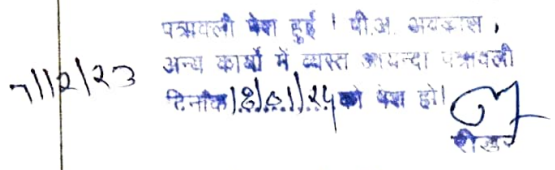 पत्रावली पेश हुई । पी.अ. अवकाश,
अन्य कार्यो में व्यस्त आयन्दा पत्रावली
7/12/23
दिनांक 18/01/24 को पेश हो।
रीडर